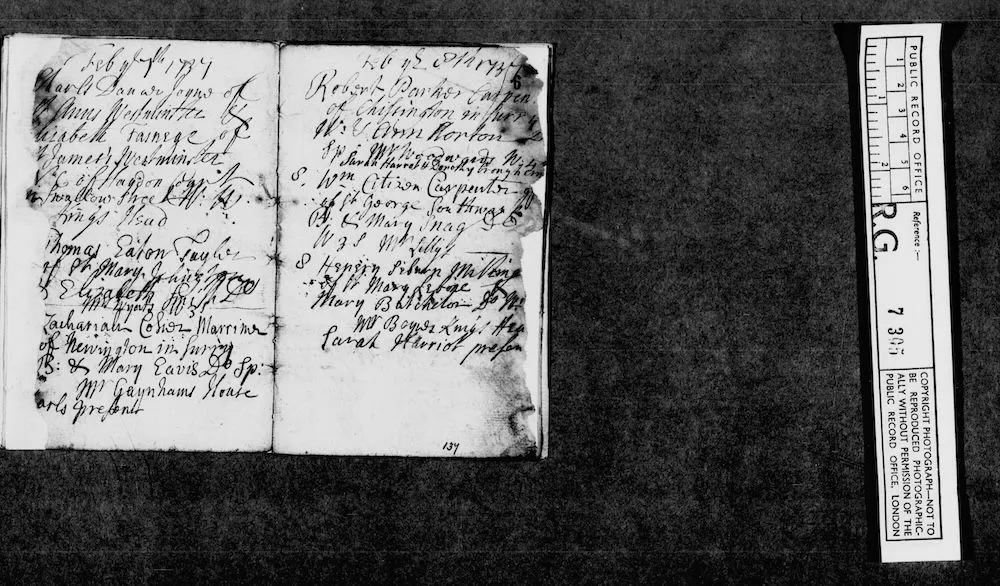 Feb ye 7th 1737
Charls Danner Joyne of
St Anns Westminster B
Elizabeth Farnege of
St James's Westminster
of Haydon
Swallow Street W: W:
Kings Head
Thomas Eaton Taylor
of St Mary
& Elizabeth Do
Zachariah Coker Marriner
of Newington in Surry
B: & Mary Eavis Do Sp:
Mr Gaynhams House
arls present
Feb ye 8th 1737
6
Robert Parker Carpen
of Chissington in Surry
W: & Ann Horton D
Sp: Mr
Sarah Harriot & Dorothy
8. Wm Citizen Carpenter
of St George Southwark
B & Mary Snag S
W & S Mr Lilly
8 Henery
of St Mary Lebone B
Mary Batchelor Do
Mr Boyer Kings Hea
Sarah Harriot presen
137
PUBLIC RECORD OFFICE
1 2 3 4 5 6
1 2
Reference :-
R.G. 7 395
COPYRIGHT PHOTOGRAPH—NOT TO
BE REPRODUCED PHOTOGRAPHIC-
ALLY WITHOUT PERMISSION OF THE
PUBLIC RECORD OFFICE, LONDON